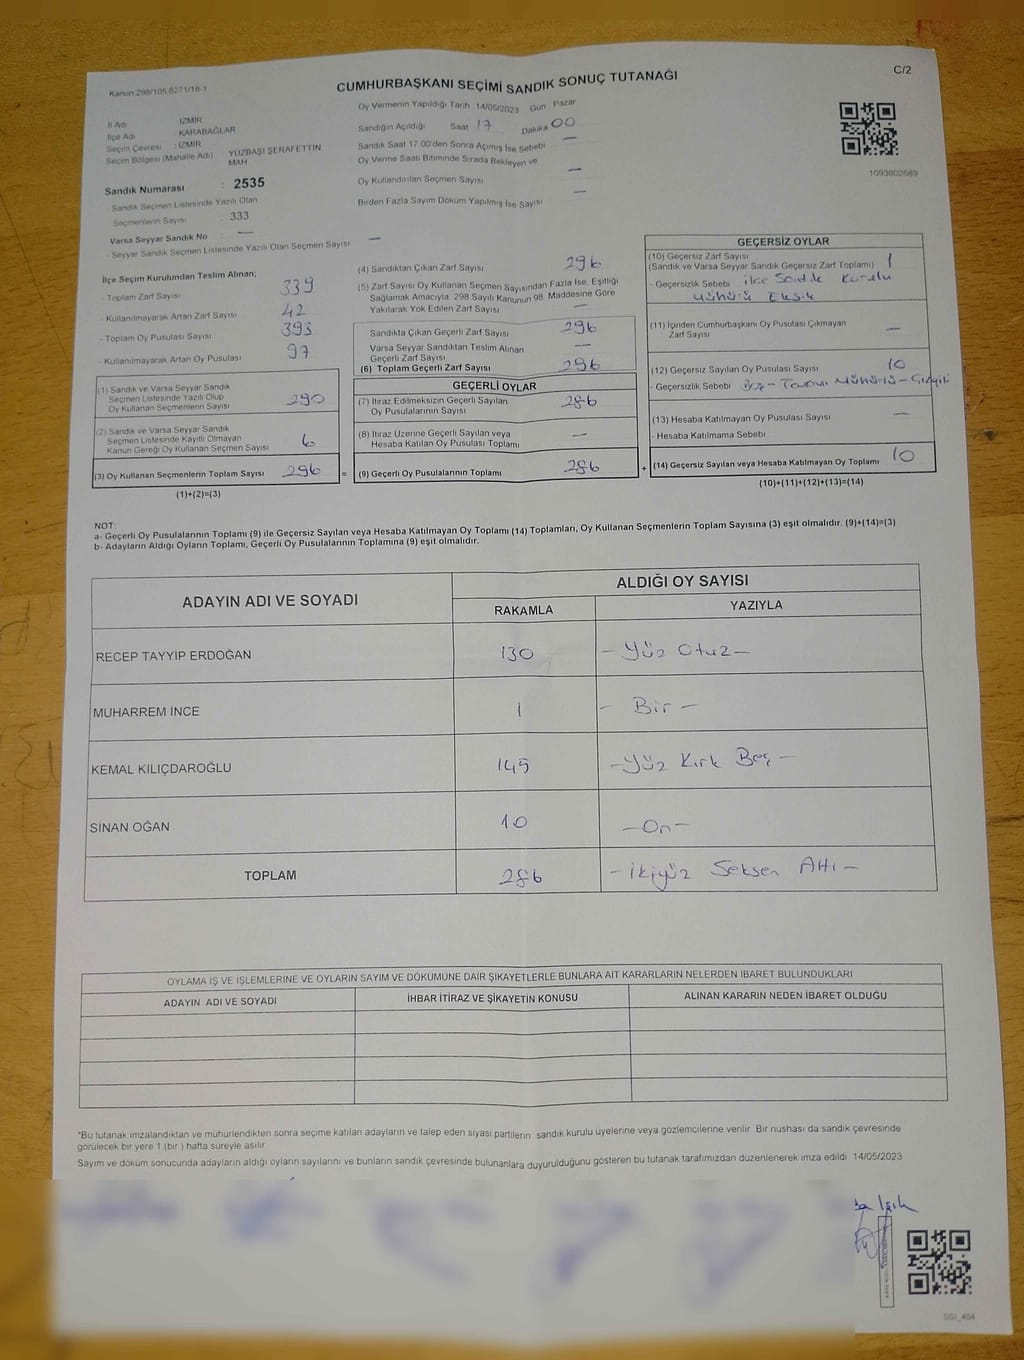 Kanun 298/105,6271/18-1
CUMHURBAŞKANI SEÇİMİ SANDIK SONUÇ TUTANAĞI
C/2
İl Adı : İZMİR
İlçe Adı : KARABAĞLAR
Seçim Çevresi : İZMİR
Seçim Bölgesi (Mahalle Adı) : YÜZBAŞI ŞERAFETTİN MAH
Sandık Numarası : 2535
- Sandık Seçmen Listesinde Yazılı Olan
Seçmenlerin Sayısı : 333
Varsa Seyyar Sandık No —
- Seyyar Sandık Seçmen Listesinde Yazılı Olan Seçmen Sayısı —
Oy Vermenin Yapıldığı Tarih 14/05/2023 Gün Pazar
Sandığın Açıldığı Saat 17 Dakika 00
Sandık Saat 17.00'den Sonra Açılmış İse Sebebi —
Oy Verme Saati Bitiminde Sırada Bekleyen ve
Oy Kullandırılan Seçmen Sayısı —
Birden Fazla Sayım Döküm Yapılmış İse Sayısı —
1093802689
İlçe Seçim Kurulundan Teslim Alınan;
- Toplam Zarf Sayısı 339
- Kullanılmayarak Artan Zarf Sayısı 42
- Toplam Oy Pusulası Sayısı 393
- Kullanılmayarak Artan Oy Pusulası 97
(1) Sandık ve Varsa Seyyar Sandık
Seçmen Listesinde Yazılı Olup
Oy Kullanan Seçmenlerin Sayısı 290
(2) Sandık ve Varsa Seyyar Sandık
Seçmen Listesinde Kayıtlı Olmayan
Kanun Gereği Oy Kullanan Seçmen Sayısı 6
(3) Oy Kullanan Seçmenlerin Toplam Sayısı 296 =
(1)+(2)=(3)
(4) Sandıktan Çıkan Zarf Sayısı 296
(5) Zarf Sayısı Oy Kullanan Seçmen Sayısından Fazla İse, Eşitliği
Sağlamak Amacıyla, 298 Sayılı Kanunun 98. Maddesine Göre
Yakılarak Yok Edilen Zarf Sayısı —
Sandıkta Çıkan Geçerli Zarf Sayısı 296
Varsa Seyyar Sandıktan Teslim Alınan
Geçerli Zarf Sayısı —
(6) Toplam Geçerli Zarf Sayısı 296
GEÇERLİ OYLAR
(7) İtiraz Edilmeksizin Geçerli Sayılan
Oy Pusulalarının Sayısı 286
(8) İtiraz Üzerine Geçerli Sayılan veya
Hesaba Katılan Oy Pusulası Toplamı —
(9) Geçerli Oy Pusulalarının Toplamı 286 +
GEÇERSİZ OYLAR
(10) Geçersiz Zarf Sayısı 1
(Sandık ve Varsa Seyyar Sandık Geçersiz Zarf Toplamı)
- Geçersizlik Sebebi ilçe Sandık Kurulu
Mühürü Eksik
(11) İçinden Cumhurbaşkanı Oy Pusulası Çıkmayan
Zarf Sayısı —
(12) Geçersiz Sayılan Oy Pusulası Sayısı 10
- Geçersizlik Sebebi Boş - Tamamı Mühürlü - Çizgili
(13) Hesaba Katılmayan Oy Pusulası Sayısı —
- Hesaba Katılmama Sebebi
(14) Geçersiz Sayılan veya Hesaba Katılmayan Oy Toplamı 10
(10)+(11)+(12)+(13)=(14)
NOT:
a- Geçerli Oy Pusulalarının Toplamı (9) ile Geçersiz Sayılan veya Hesaba Katılmayan Oy Toplamı (14) Toplamları, Oy Kullanan Seçmenlerin Toplam Sayısına (3) eşit olmalıdır. (9)+(14)=(3)
b- Adayların Aldığı Oyların Toplamı, Geçerli Oy Pusulalarının Toplamına (9) eşit olmalıdır.
ADAYIN ADI VE SOYADI
ALDIĞI OY SAYISI
RAKAMLA YAZIYLA
RECEP TAYYİP ERDOĞAN 130 - Yüz Otuz -
MUHARREM İNCE 1 - Bir -
KEMAL KILIÇDAROĞLU 145 - Yüz Kırk Beş -
SİNAN OĞAN 10 - On -
TOPLAM 286 - İkiyüz Seksen Altı -
OYLAMA İŞ VE İŞLEMLERİNE VE OYLARIN SAYIM VE DÖKÜMÜNE DAİR ŞİKAYETLERLE BUNLARA AİT KARARLARIN NELERDEN İBARET BULUNDUKLARI
ADAYIN ADI VE SOYADI İHBAR İTİRAZ VE ŞİKAYETİN KONUSU ALINAN KARARIN NEDEN İBARET OLDUĞU
*Bu tutanak imzalandıktan ve mühürlendikten sonra seçime katılan adayların ve talep eden siyasi partilerin sandık kurulu üyelerine veya gözlemcilerine verilir. Bir nüshası da sandık çevresinde
görülecek bir yere 1 (bir ) hafta süreyle asılır.
Sayım ve döküm sonucunda adayların aldığı oyların sayılarını ve bunların sandık çevresinde bulunanlara duyurulduğunu gösteren bu tutanak tarafımızdan düzenlenerek imza edildi. 14/05/2023
Işık
SGI_404